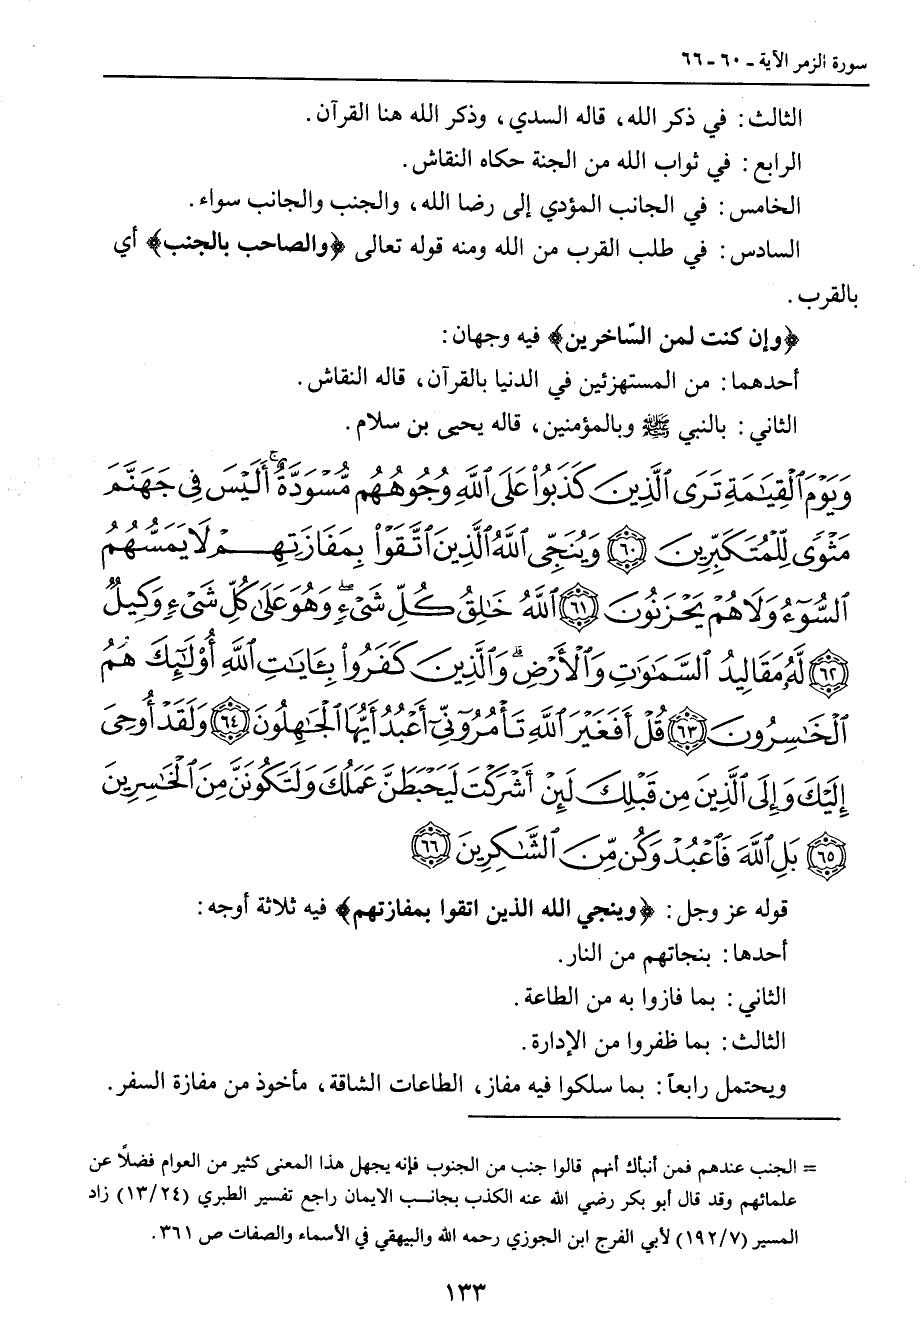 سورة الزمر الآية - ٦٠ - ٦٦
الثالث: في ذكر الله، قاله السدي، وذكر الله هنا القرآن.
الرابع: في ثواب الله من الجنة حكاه النقاش.
الخامس: في الجانب المؤدي إلى رضا الله، والجنب والجانب سواء.
السادس: في طلب القرب من الله ومنه قوله تعالى ﴿والصاحب بالجنب﴾ أي
بالقرب.
﴿وإن كنت لمن السّاخرين﴾ فيه وجهان:
أحدهما: من المستهزئين في الدنيا بالقرآن، قاله النقاش.
الثاني: بالنبي ﷺ وبالمؤمنين، قاله يحيى بن سلام.
وَيَوْمَ ٱلْقِيَـٰمَةِ تَرَى ٱلَّذِينَ كَذَبُوا۟ عَلَى ٱللَّهِ وُجُوهُهُم مُّسْوَدَّةٌ ۚ أَلَيْسَ فِى جَهَنَّمَ
مَثْوًى لِّلْمُتَكَبِّرِينَ ﴿٦٠﴾ وَيُنَجِّى ٱللَّهُ ٱلَّذِينَ ٱتَّقَوْا۟ بِمَفَازَتِهِمْ لَا يَمَسُّهُمُ
ٱلسُّوٓءُ وَلَا هُمْ يَحْزَنُونَ ﴿٦١﴾ ٱللَّهُ خَـٰلِقُ كُلِّ شَىْءٍ ۖ وَهُوَ عَلَىٰ كُلِّ شَىْءٍ وَكِيلٌ
﴿٦٢﴾ لَّهُۥ مَقَالِيدُ ٱلسَّمَـٰوَٰتِ وَٱلْأَرْضِ ۗ وَٱلَّذِينَ كَفَرُوا۟ بِـَٔايَـٰتِ ٱللَّهِ أُو۟لَـٰٓئِكَ هُمُ
ٱلْخَـٰسِرُونَ ﴿٦٣﴾ قُلْ أَفَغَيْرَ ٱللَّهِ تَأْمُرُوٓنِّىٓ أَعْبُدُ أَيُّهَا ٱلْجَـٰهِلُونَ ﴿٦٤﴾ وَلَقَدْ أُوحِىَ
إِلَيْكَ وَإِلَى ٱلَّذِينَ مِن قَبْلِكَ لَئِنْ أَشْرَكْتَ لَيَحْبَطَنَّ عَمَلُكَ وَلَتَكُونَنَّ مِنَ ٱلْخَـٰسِرِينَ
﴿٦٥﴾ بَلِ ٱللَّهَ فَٱعْبُدْ وَكُن مِّنَ ٱلشَّـٰكِرِينَ ﴿٦٦﴾
قوله عز وجل: ﴿وينجي الله الذين اتقوا بمفازتهم﴾ فيه ثلاثة أوجه:
أحدها: بنجاتهم من النار.
الثاني: بما فازوا به من الطاعة.
الثالث: بما ظفروا من الإدارة.
ويحتمل رابعاً: بما سلكوا فيه مفاز، الطاعات الشاقة، مأخوذ من مفازة السفر.
= الجنب عندهم فمن أنبأك أنهم قالوا جنب من الجنوب فإنه يجهل هذا المعنى كثير من العوام فضلاً عن
علمائهم وقد قال أبو بكر رضي الله عنه الكذب بجانب الايمان راجع تفسير الطبري (١٣/٢٤) زاد
المسير (١٩٢/٧) لأبي الفرج ابن الجوزي رحمه الله والبيهقي في الأسماء والصفات ص ٣٦١.
١٣٣